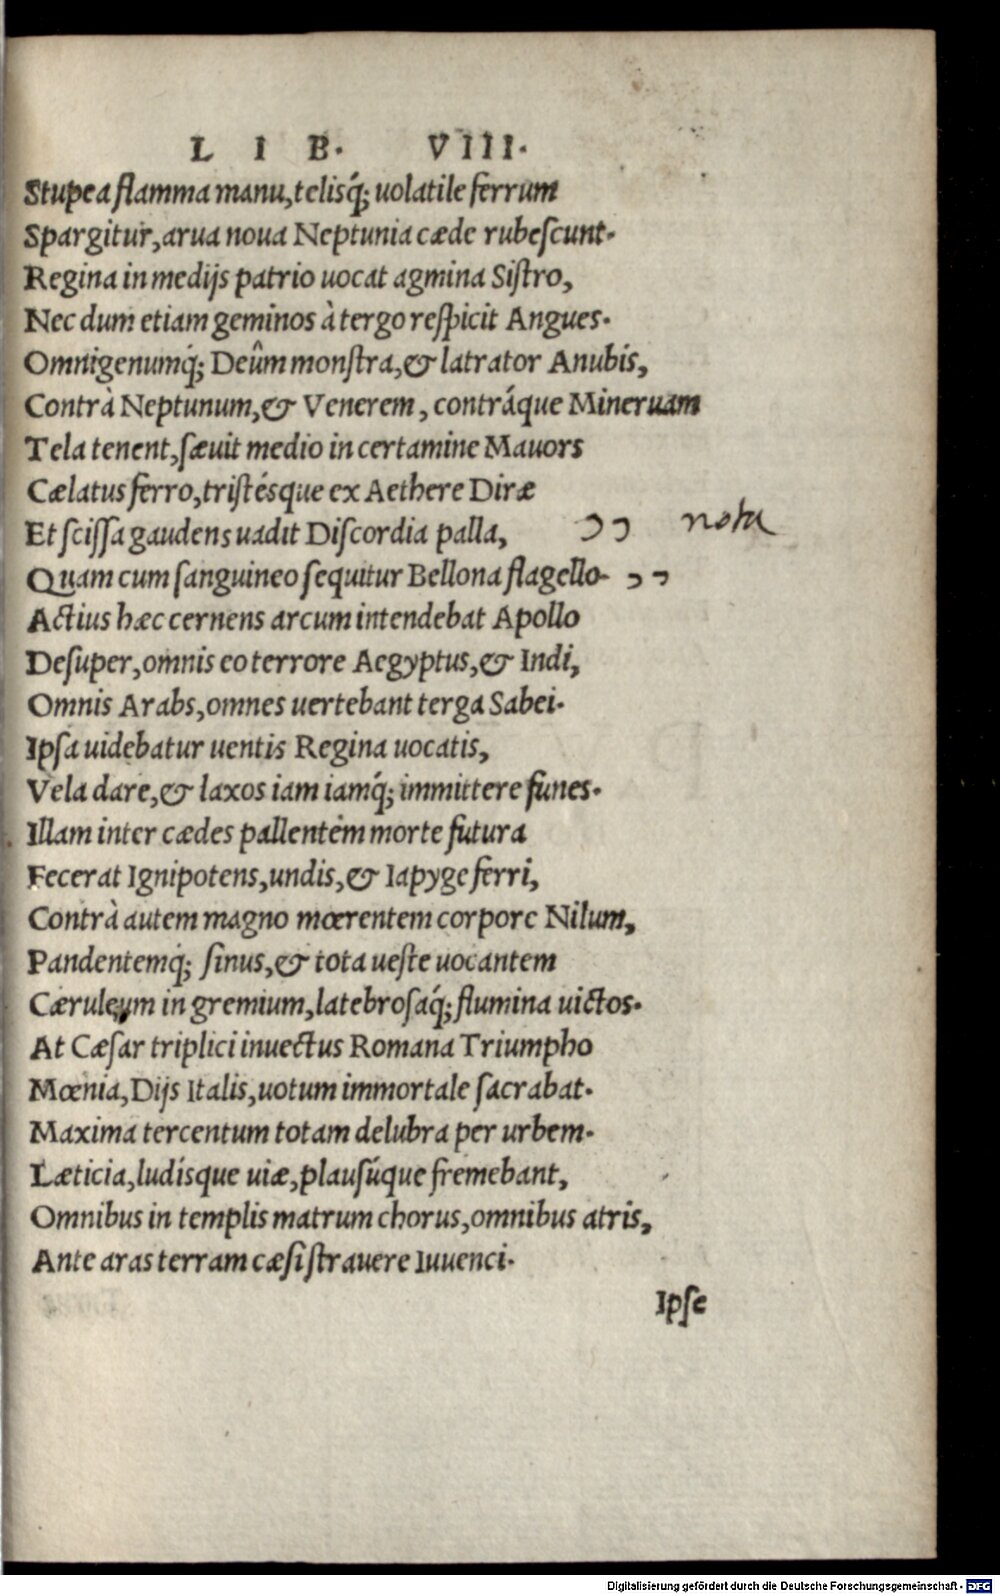 LIB. VIII.
Stupea flamma manu, telisq́; uolatile ferrum
Spargitur, arua noua Neptunia cæde rubescunt.
Regina in medijs patrio uocat agmina Sistro,
Nec dum etiam geminos à tergo respicit Angues.
Omnigenumq́; Deûm monstra, & latrator Anubis,
Contrà Neptunum, & Venerem, contráque Mineruam
Tela tenent, sæuit medio in certamine Mauors
Cælatus ferro, tristésque ex Aethere Diræ
Et scissa gaudens uadit Discordia palla, ↄↄ nota
Quam cum sanguineo sequitur Bellona flagello.
Actius hæc cernens arcum intendebat Apollo
Desuper, omnis eo terrore Aegyptus, & Indi,
Omnis Arabs, omnes uertebant terga Sabei.
Ipsa uidebatur uentis Regina uocatis,
Vela dare, & laxos iam iamq́; immittere funes.
Illam inter cædes pallentem morte futura
Fecerat Ignipotens, undis, & Iapyge ferri,
Contrà autem magno mœrentem corpore Nilum,
Pandentemq́; sinus, & tota ueste uocantem
Cæruleum in gremium, latebrosaq́; flumina uictos.
At Cæsar triplici inuectus Romana Triumpho
Mœnia, Dijs Italis, uotum immortale sacrabat.
Maxima tercentum totam delubra per urbem.
Læticia, ludisque uiæ, plausúque fremebant,
Omnibus in templis matrum chorus, omnibus atris,
Ante aras terram cæsi strauere Iuuenci.
Ipse
Digitalisierung gefördert durch die Deutsche Forschungsgemeinschaft - DFG